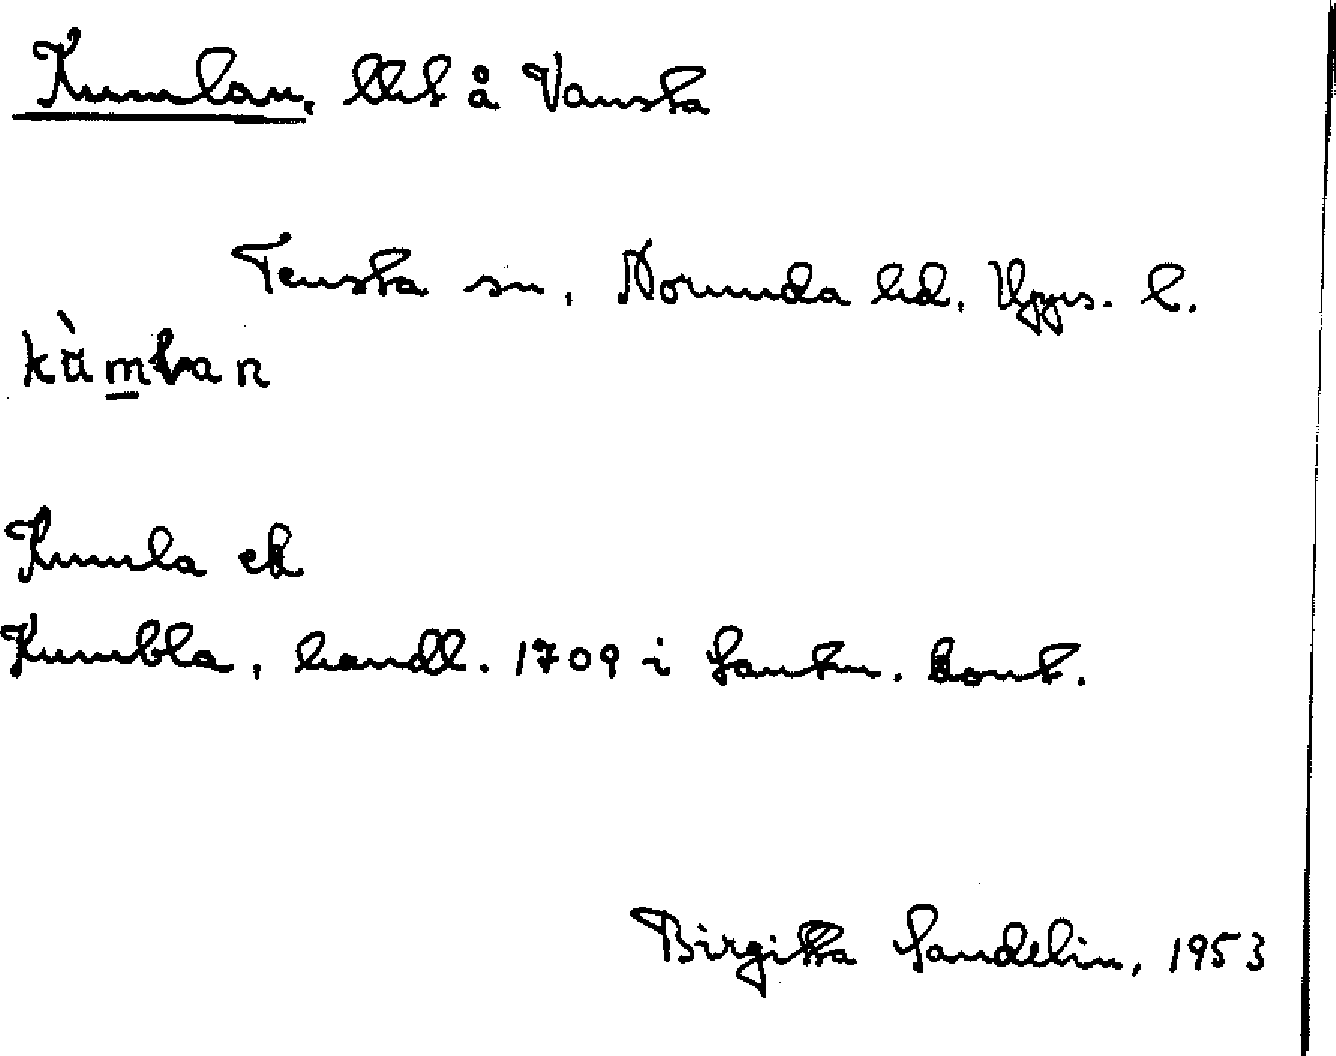 Kumlan, lht å Vansta
Tensta sn, Norunda hd. Upps. l.
kùmlan
Kumla ek
Kumbla, handl. 1709 i Lantm. kont.
Birgitta Sandelin, 1953